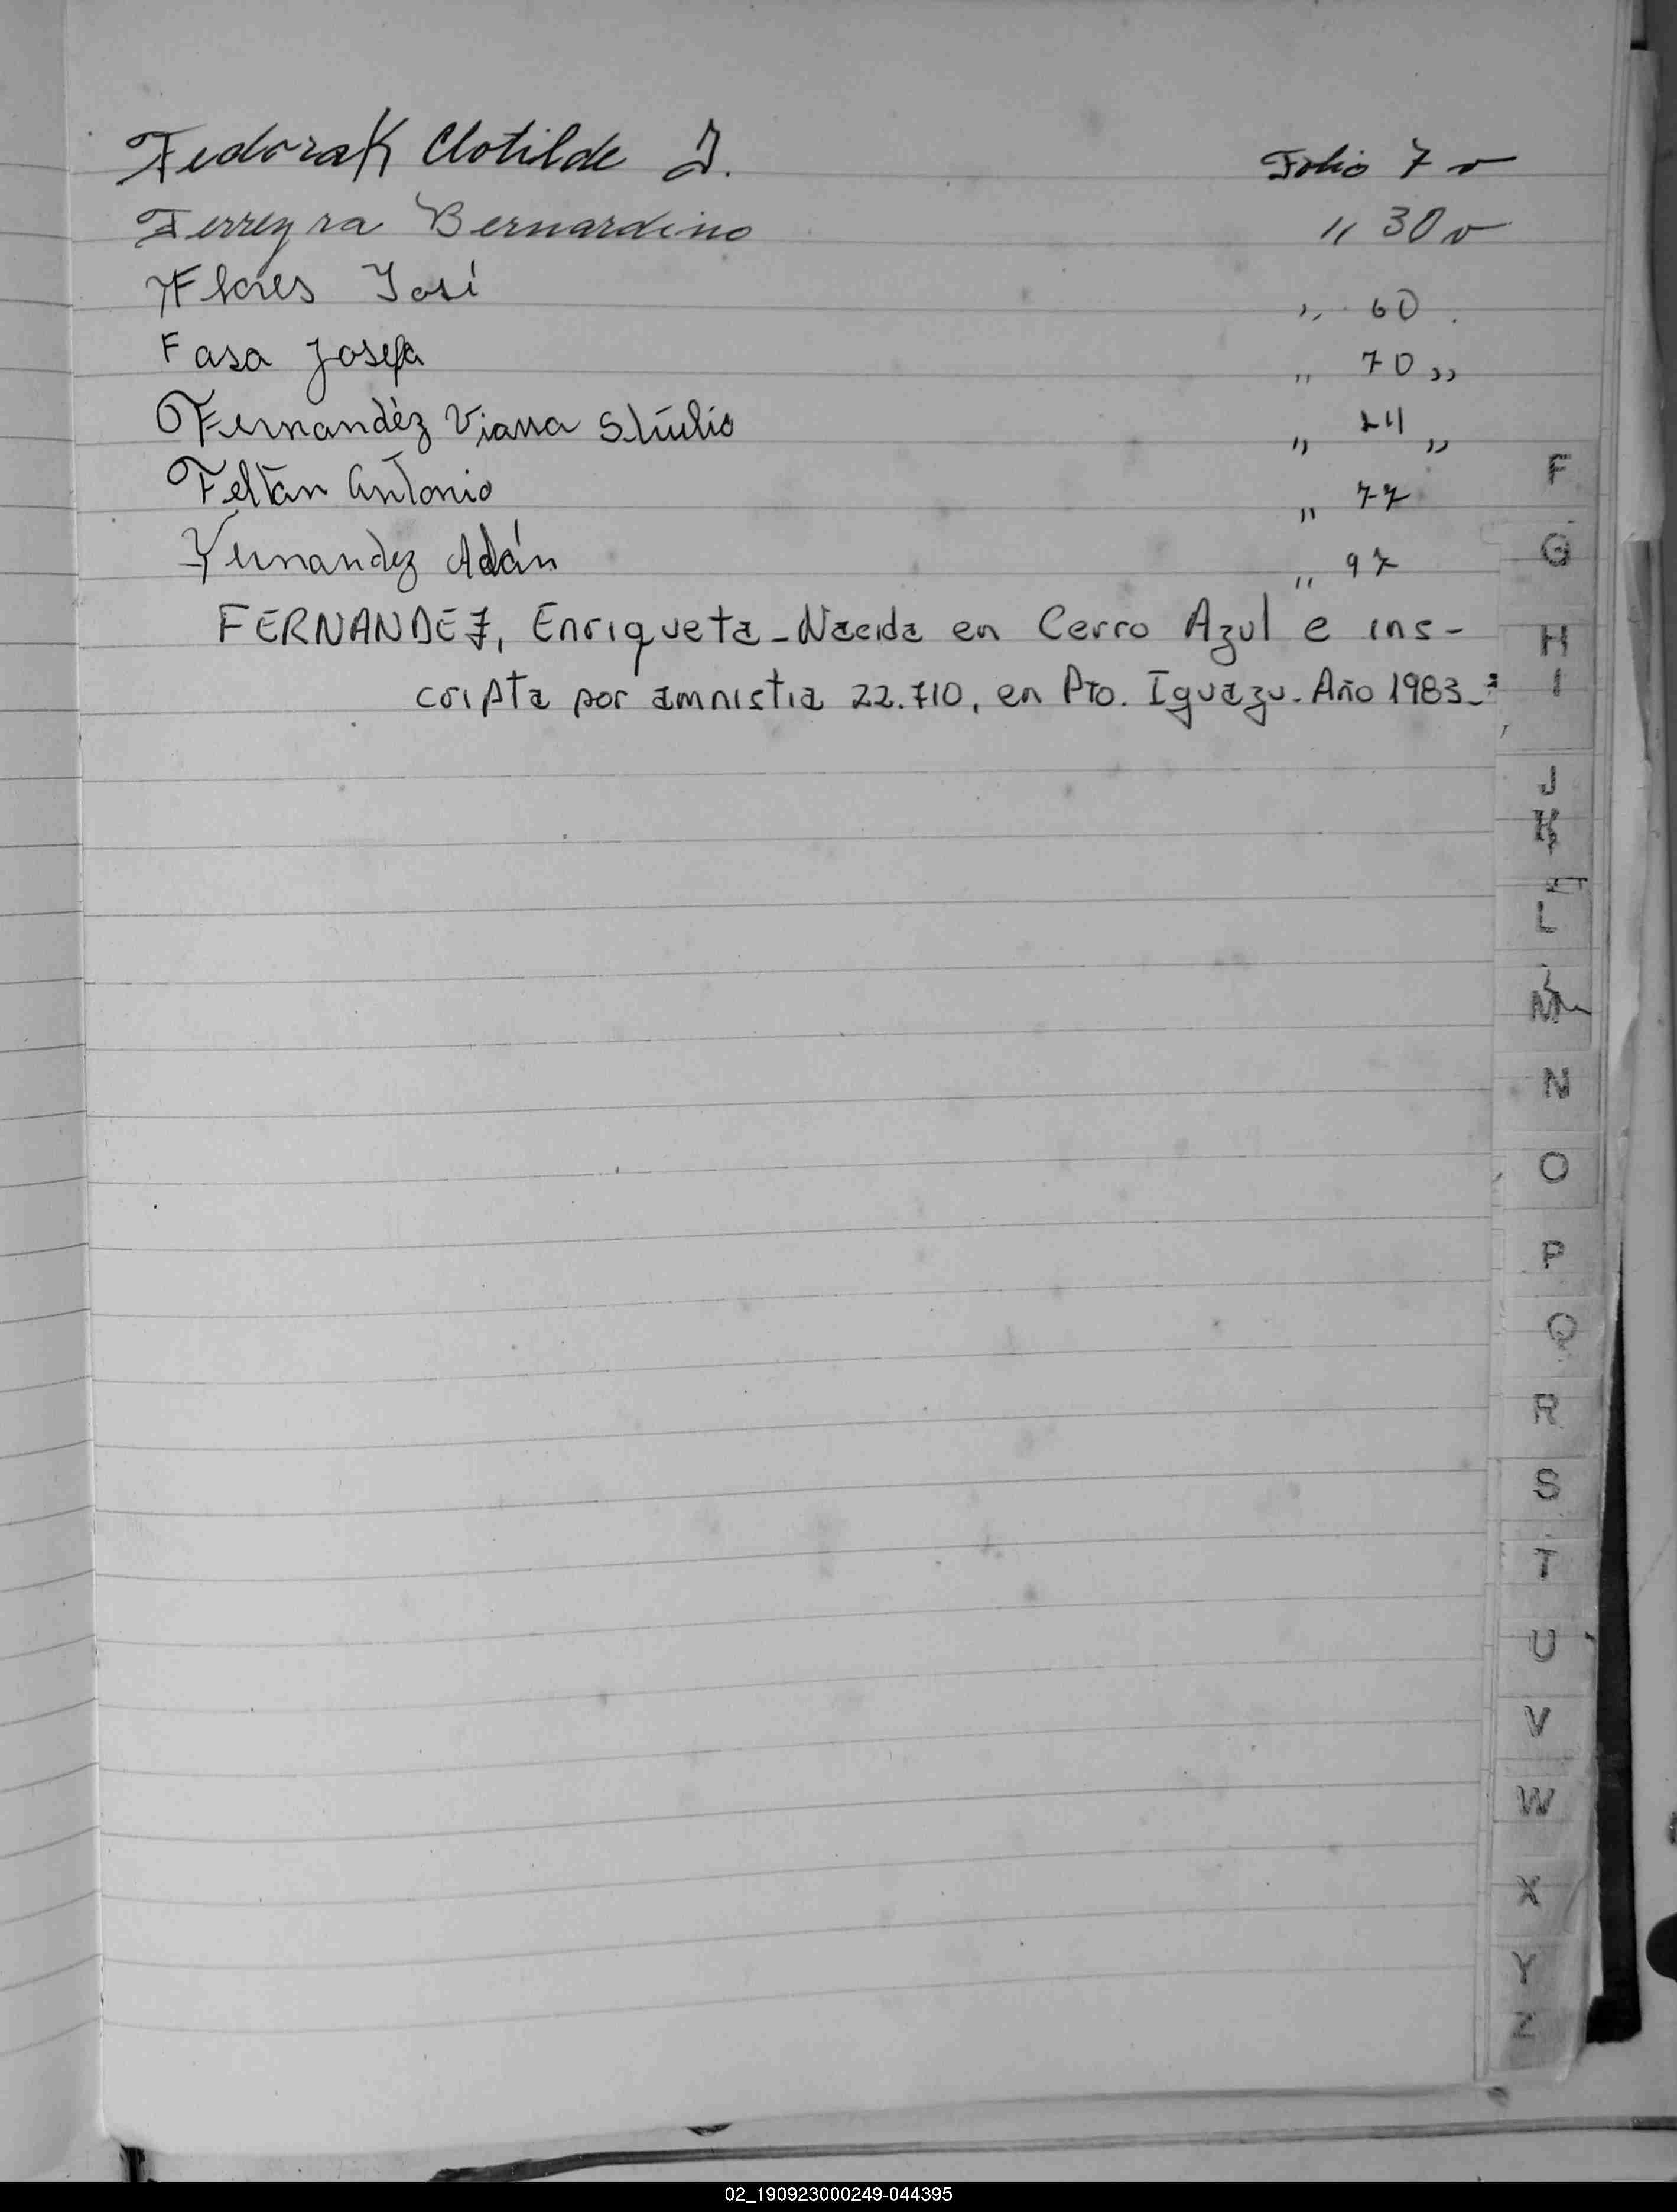 Fedorak Clotilde J. Folio 7 v
Ferreyra Bernardino " 30 v
Flores José " 60
Fasa Josefa " 70 "
Fernandéz Viana " 24 "
Feltan Antonio " 77
Fernandez Adán " 97
FERNANDEZ, Enriqueta - Nacida en Cerro Azul e ins-
cripta por amnistia 22.710, en Pto. Iguazu. Año 1983_
F
G
H
I
J
K
L
M
N
O
P
Q
R
S
T
U
V
W
X
Y
Z
02_190923000249-044395